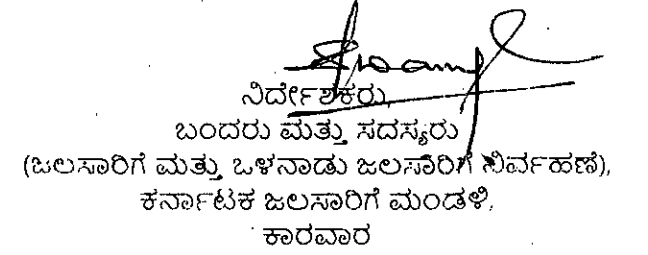 ನಿರ್ದೇಶಕರು,
ಬಂದರು ಮತ್ತು ಸದಸ್ಯರು
(ಜಲಸಾರಿಗೆ ಮತ್ತು ಒಳನಾಡು ಜಲಸಾರಿಗೆ ನಿರ್ವಹಣೆ),
ಕರ್ನಾಟಕ ಜಲಸಾರಿಗೆ ಮಂಡಳಿ,
ಕಾರವಾರ